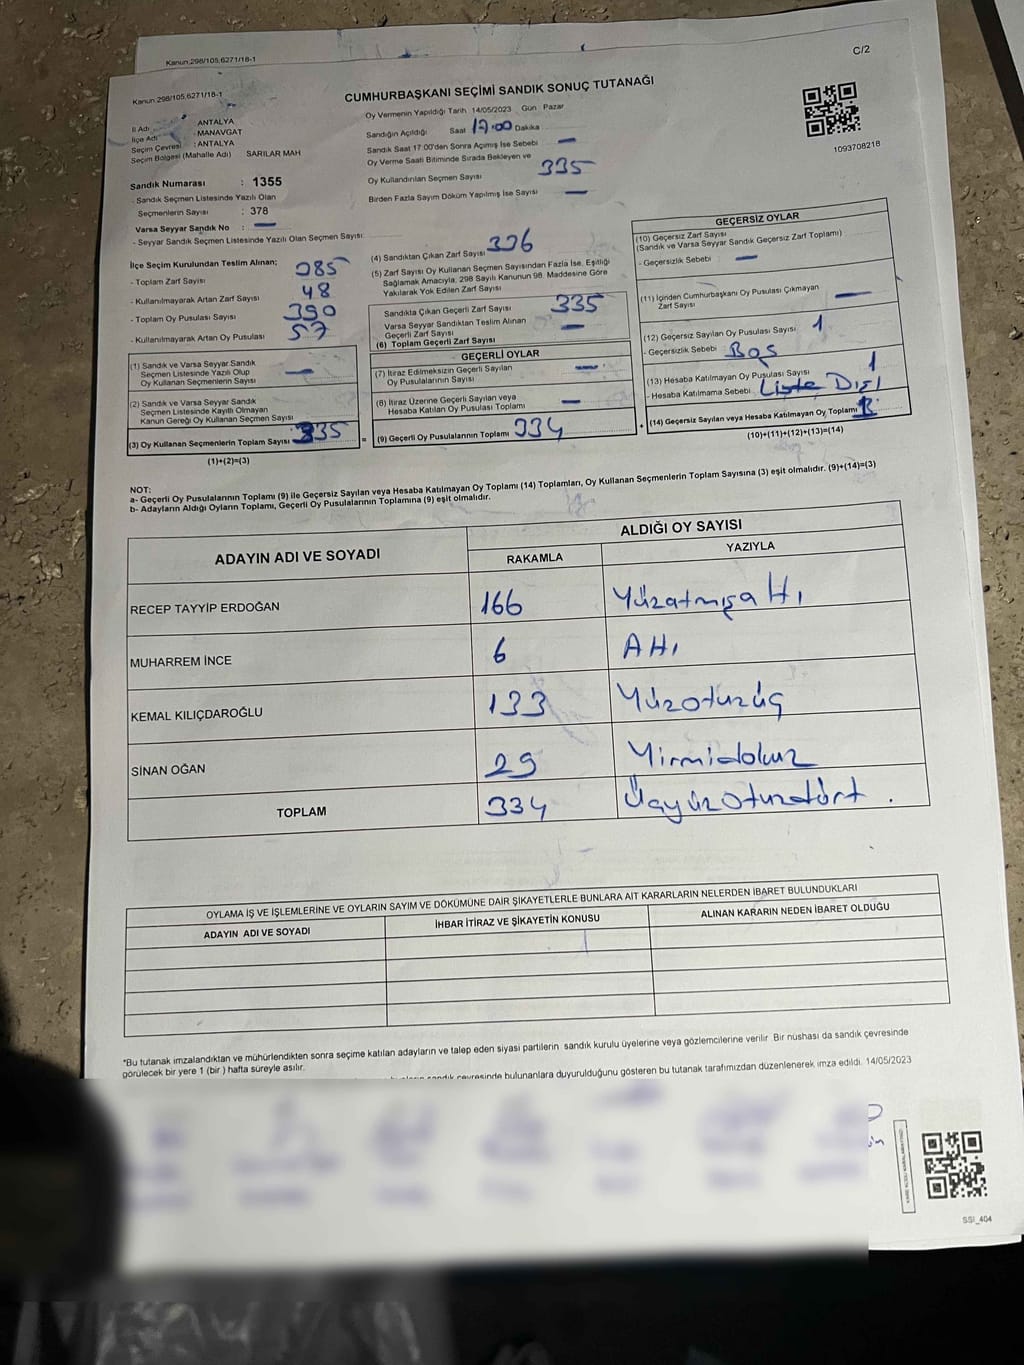 Kanun.298/105,6271/18-1
C/2
Kanun.298/105,6271/18-1
CUMHURBAŞKANI SEÇİMİ SANDIK SONUÇ TUTANAĞI
İl Adı : ANTALYA
İlçe Adı : MANAVGAT
Seçim Çevresi : ANTALYA
Seçim Bölgesi (Mahalle Adı) SARILAR MAH
Oy Vermenin Yapıldığı Tarih 14/05/2023 Gün Pazar
Sandığın Açıldığı Saat 17:00 Dakika
Sandık Saat 17.00'den Sonra Açılmış İse Sebebi —
Oy Verme Saati Bitiminde Sırada Bekleyen ve
Oy Kullandırılan Seçmen Sayısı 335
Birden Fazla Sayım Döküm Yapılmış İse Sayısı —
1093708218
Sandık Numarası : 1355
- Sandık Seçmen Listesinde Yazılı Olan
Seçmenlerin Sayısı : 378
Varsa Seyyar Sandık No : —
- Seyyar Sandık Seçmen Listesinde Yazılı Olan Seçmen Sayısı:
İlçe Seçim Kurulundan Teslim Alınan;
- Toplam Zarf Sayısı 385
- Kullanılmayarak Artan Zarf Sayısı 48
- Toplam Oy Pusulası Sayısı 390
- Kullanılmayarak Artan Oy Pusulası 57
(1) Sandık ve Varsa Seyyar Sandık
Seçmen Listesinde Yazılı Olup
Oy Kullanan Seçmenlerin Sayısı —
(2) Sandık ve Varsa Seyyar Sandık
Seçmen Listesinde Kayıtlı Olmayan
Kanun Gereği Oy Kullanan Seçmen Sayısı
(3) Oy Kullanan Seçmenlerin Toplam Sayısı 335
(1)+(2)=(3)
(4) Sandıktan Çıkan Zarf Sayısı 336
(5) Zarf Sayısı Oy Kullanan Seçmen Sayısından Fazla İse, Eşitliği
Sağlamak Amacıyla, 298 Sayılı Kanunun 98. Maddesine Göre
Yakılarak Yok Edilen Zarf Sayısı
Sandıkta Çıkan Geçerli Zarf Sayısı 335
Varsa Seyyar Sandıktan Teslim Alınan
Geçerli Zarf Sayısı —
(6) Toplam Geçerli Zarf Sayısı
GEÇERLİ OYLAR
(7) İtiraz Edilmeksizin Geçerli Sayılan
Oy Pusulalarının Sayısı —
(8) İtiraz Üzerine Geçerli Sayılan veya
Hesaba Katılan Oy Pusulası Toplamı —
= (9) Geçerli Oy Pusulalarının Toplamı 334
GEÇERSİZ OYLAR
(10) Geçersiz Zarf Sayısı
(Sandık ve Varsa Seyyar Sandık Geçersiz Zarf Toplamı)
- Geçersizlik Sebebi —
(11) İçinden Cumhurbaşkanı Oy Pusulası Çıkmayan
Zarf Sayısı —
(12) Geçersiz Sayılan Oy Pusulası Sayısı 1
- Geçersizlik Sebebi Boş
(13) Hesaba Katılmayan Oy Pusulası Sayısı 1
- Hesaba Katılmama Sebebi Liste Dışı
+ (14) Geçersiz Sayılan veya Hesaba Katılmayan Oy Toplamı
(10)+(11)+(12)+(13)=(14)
NOT:
a- Geçerli Oy Pusulalarının Toplamı (9) ile Geçersiz Sayılan veya Hesaba Katılmayan Oy Toplamı (14) Toplamları, Oy Kullanan Seçmenlerin Toplam Sayısına (3) eşit olmalıdır. (9)+(14)=(3)
b- Adayların Aldığı Oyların Toplamı, Geçerli Oy Pusulalarının Toplamına (9) eşit olmalıdır.
ADAYIN ADI VE SOYADI
ALDIĞI OY SAYISI
RAKAMLA YAZIYLA
RECEP TAYYİP ERDOĞAN 166 Yüzatmışaltı
MUHARREM İNCE 6 Altı
KEMAL KILIÇDAROĞLU 133 Yüzotuzüç
SİNAN OĞAN 29 Yirmidokuz
TOPLAM 334 Üçyüzotuzdört .
OYLAMA İŞ VE İŞLEMLERİNE VE OYLARIN SAYIM VE DÖKÜMÜNE DAİR ŞİKAYETLERLE BUNLARA AİT KARARLARIN NELERDEN İBARET BULUNDUKLARI
ADAYIN ADI VE SOYADI İHBAR İTİRAZ VE ŞİKAYETİN KONUSU ALINAN KARARIN NEDEN İBARET OLDUĞU
*Bu tutanak imzalandıktan ve mühürlendikten sonra seçime katılan adayların ve talep eden siyasi partilerin sandık kurulu üyelerine veya gözlemcilerine verilir. Bir nüshası da sandık çevresinde
görülecek bir yere 1 (bir) hafta süreyle asılır.
sandık çevresinde bulunanlara duyurulduğunu gösteren bu tutanak tarafımızdan düzenlenerek imza edildi. 14/05/2023
SSI_404